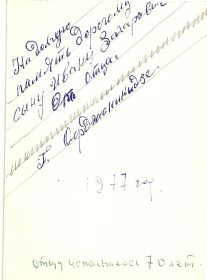 На долгую
память Дорогому
сыну Ивану Захаровичу
От отца.
Г. Орджоникидзе.
1977 год.
отцу исполнилось 70 лет.